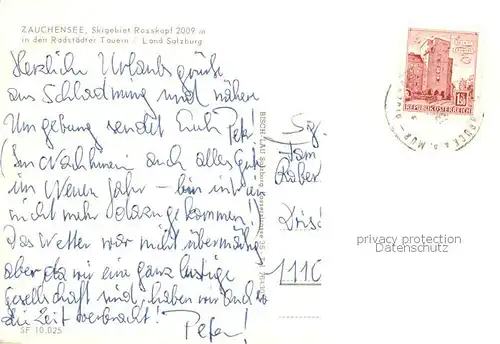 ZAUCHENSEE, Skigebiet Rosskopf 2009 m
in den Radstädter Tauern / Land Salzburg
Herzliche Urlaubsgrüße
aus Schladming und nähere
Umgebung sendet Euch Peter
(Im Nachhinein auch alles Gute
im Neuen Jahr – bin
nicht mehr dazugekommen!)
Das Wetter war nicht übermäßig
aber da wir eine ganz lustige
Gesellschaft sind, haben wir auch so
die Zeit verbracht!
Peter!
SF 10.025
REPUBLIK ÖSTERREICH
BRUCK a.d. MUR
Fam.
1110
privacy protection
Datenschutz